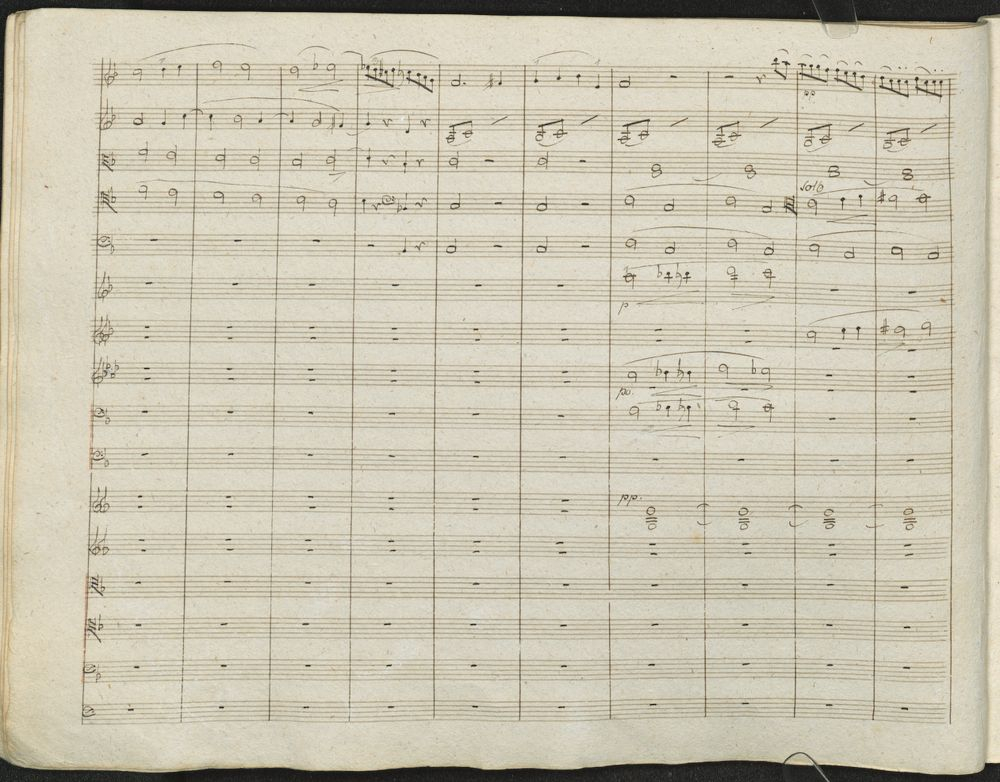 pp
solo
p
po.
pp.